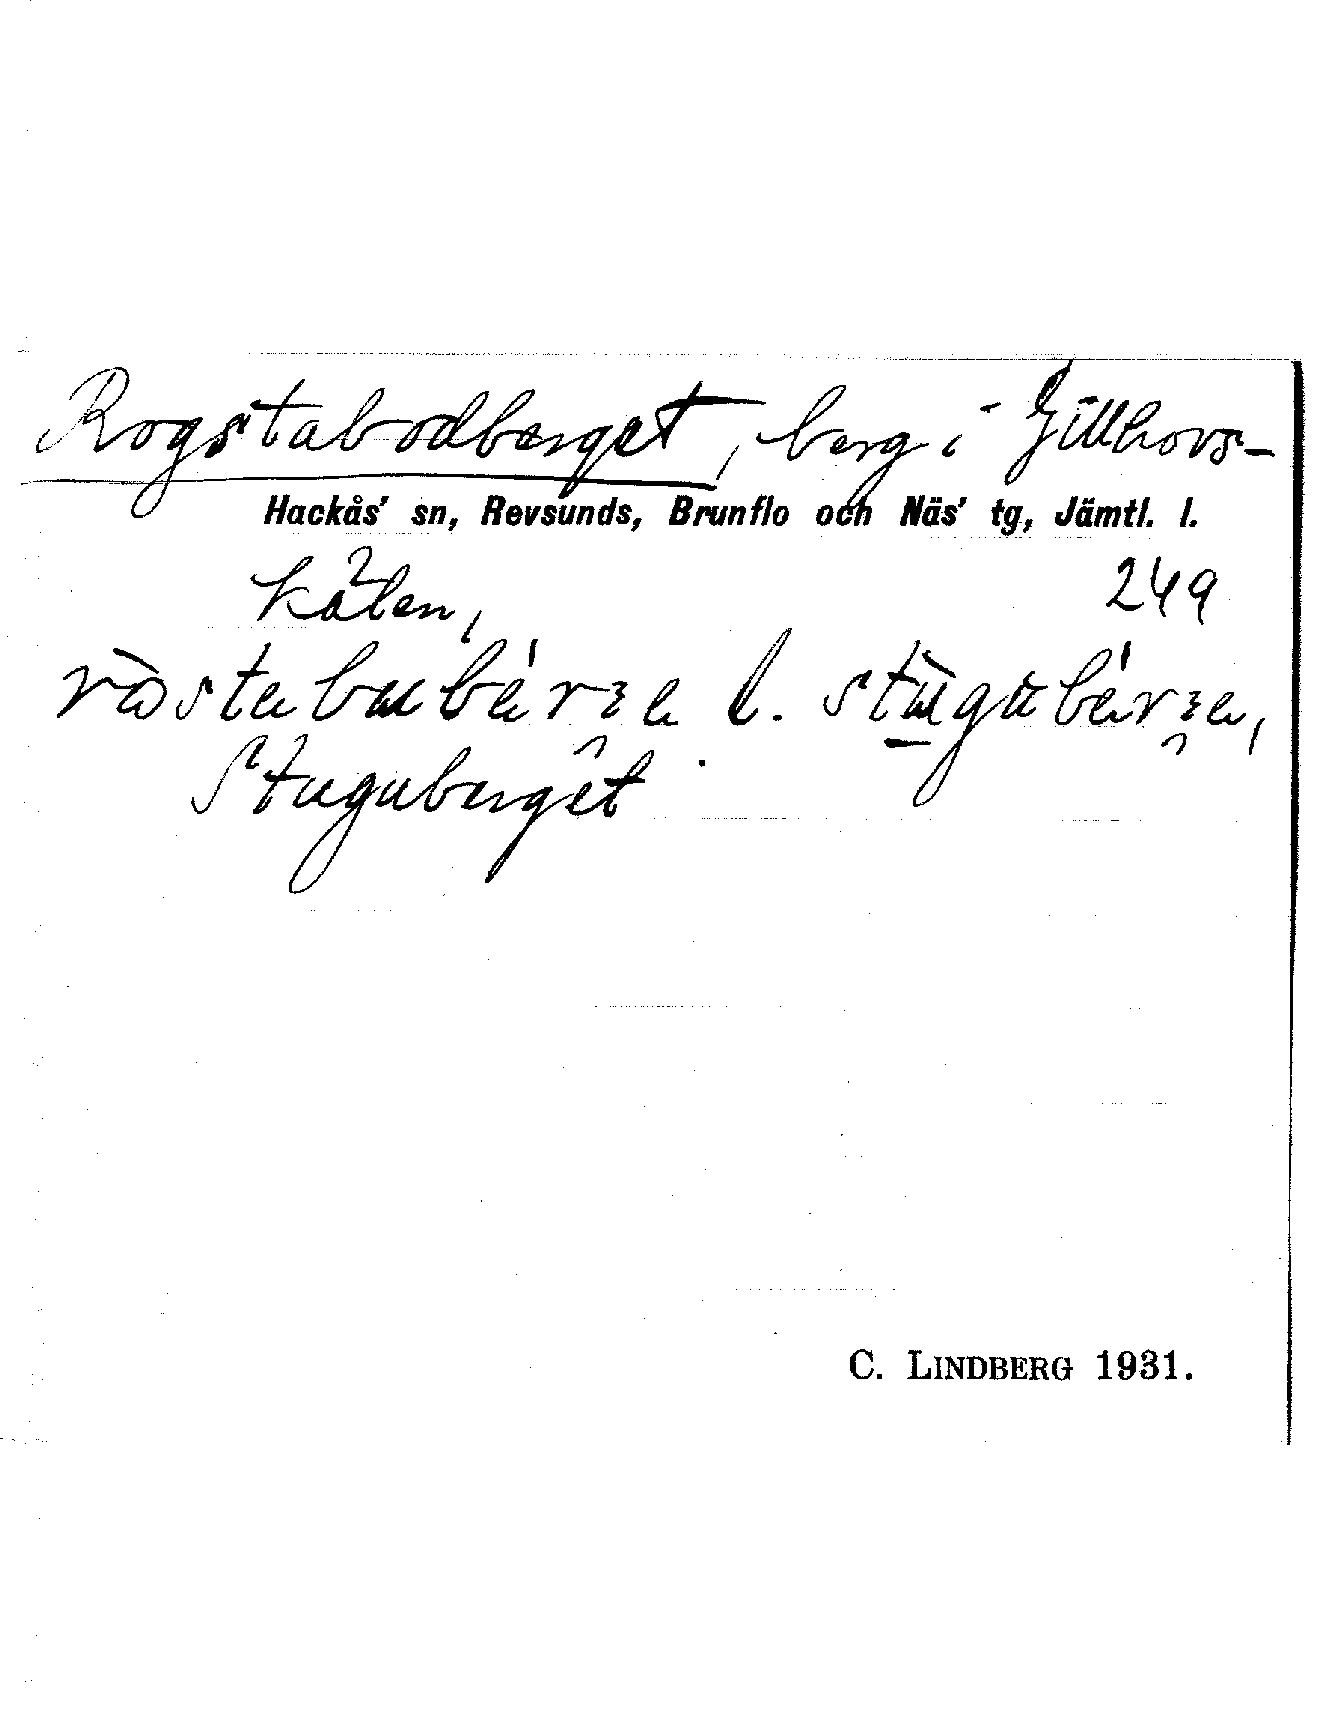 Rogstabodberget, berg i Gillhovs-
Hackås' sn, Revsunds, Brunflo och Näs' tg, Jämtl. l.
kälen, 249
l.
Stuguberget
C. LINDBERG 1931.